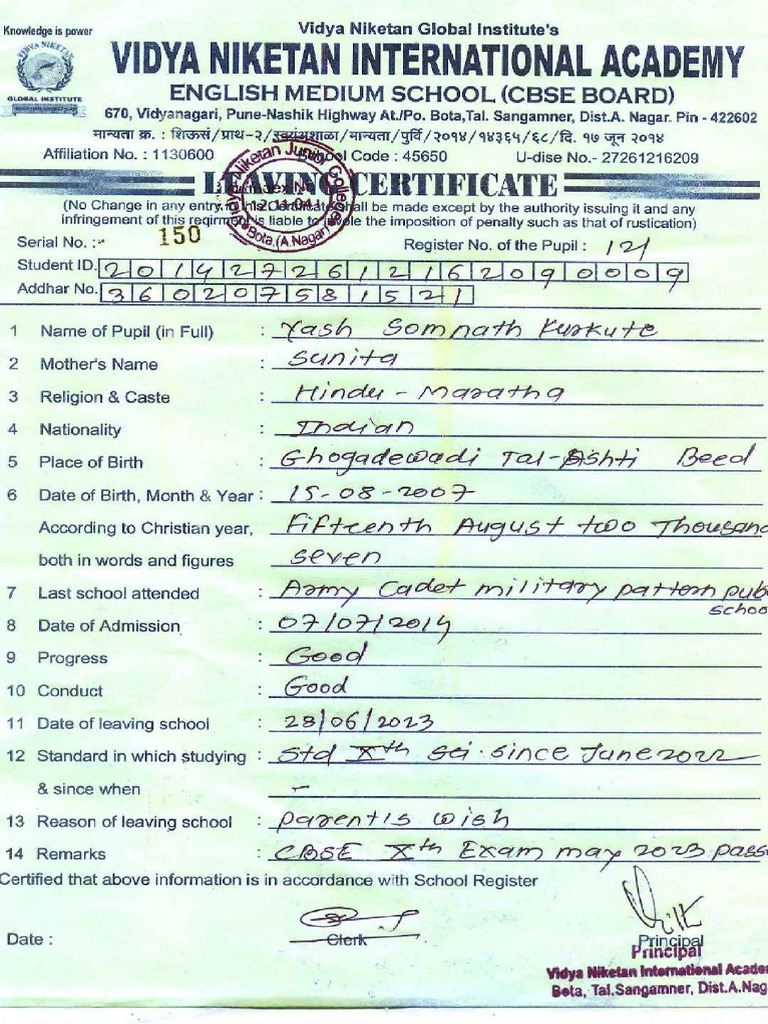 Knowledge is power
Vidya Niketan Global Institute's
VIDYA NIKETAN
GLOBAL INSTITUTE
VIDYA NIKETAN INTERNATIONAL ACADEMY
ENGLISH MEDIUM SCHOOL (CBSE BOARD)
670, Vidyanagari, Pune-Nashik Highway At./Po. Bota,Tal. Sangamner, Dist.A. Nagar. Pin - 422602
मान्यता क्र. : शिऊसं/प्राथ-२/स्वयंमशाळा/मान्यता/पुर्वि/२०१४/१४३६५/६८/दि. १७ जून २०१४
Affiliation No. : 1130600 School Code : 45650 U-dise No.- 27261216209
LEAVING CERTIFICATE
Niketan Junior College
Index No.
Bota, (A.Nagar)
(No Change in any entry in this certificate shall be made except by the authority issuing it and any
infringement of this reqirment is liable to invole the imposition of penalty such as that of rustication)
Serial No. :- 150 Register No. of the Pupil : 121
Student ID. 2014272612162090009
Addhar No. 360207581521
1 Name of Pupil (in Full) : Yash Somnath Kurkute
2 Mother's Name : Sunita
3 Religion & Caste : Hindu - Maratha
4 Nationality : Indian
5 Place of Birth : Ghogadewadi Tal-Ashti Beed
6 Date of Birth, Month & Year : 15-08-2007
According to Christian year, Fifteenth August two Thousand
both in words and figures seven
7 Last school attended : Army Cadet military pattern pub
school
8 Date of Admission : 07/07/2014
9 Progress : Good
10 Conduct : Good
11 Date of leaving school : 28/06/2023
12 Standard in which studying : Std Xth sci. since June 2022
& since when -
13 Reason of leaving school : parentis wish
14 Remarks : CBSE Xth Exam may 2023 pass
Certified that above information is in accordance with School Register
Date : Clerk Principal
Principal
Vidya Niketan International Acade
Bota, Tal.Sangamner, Dist.A.Nag